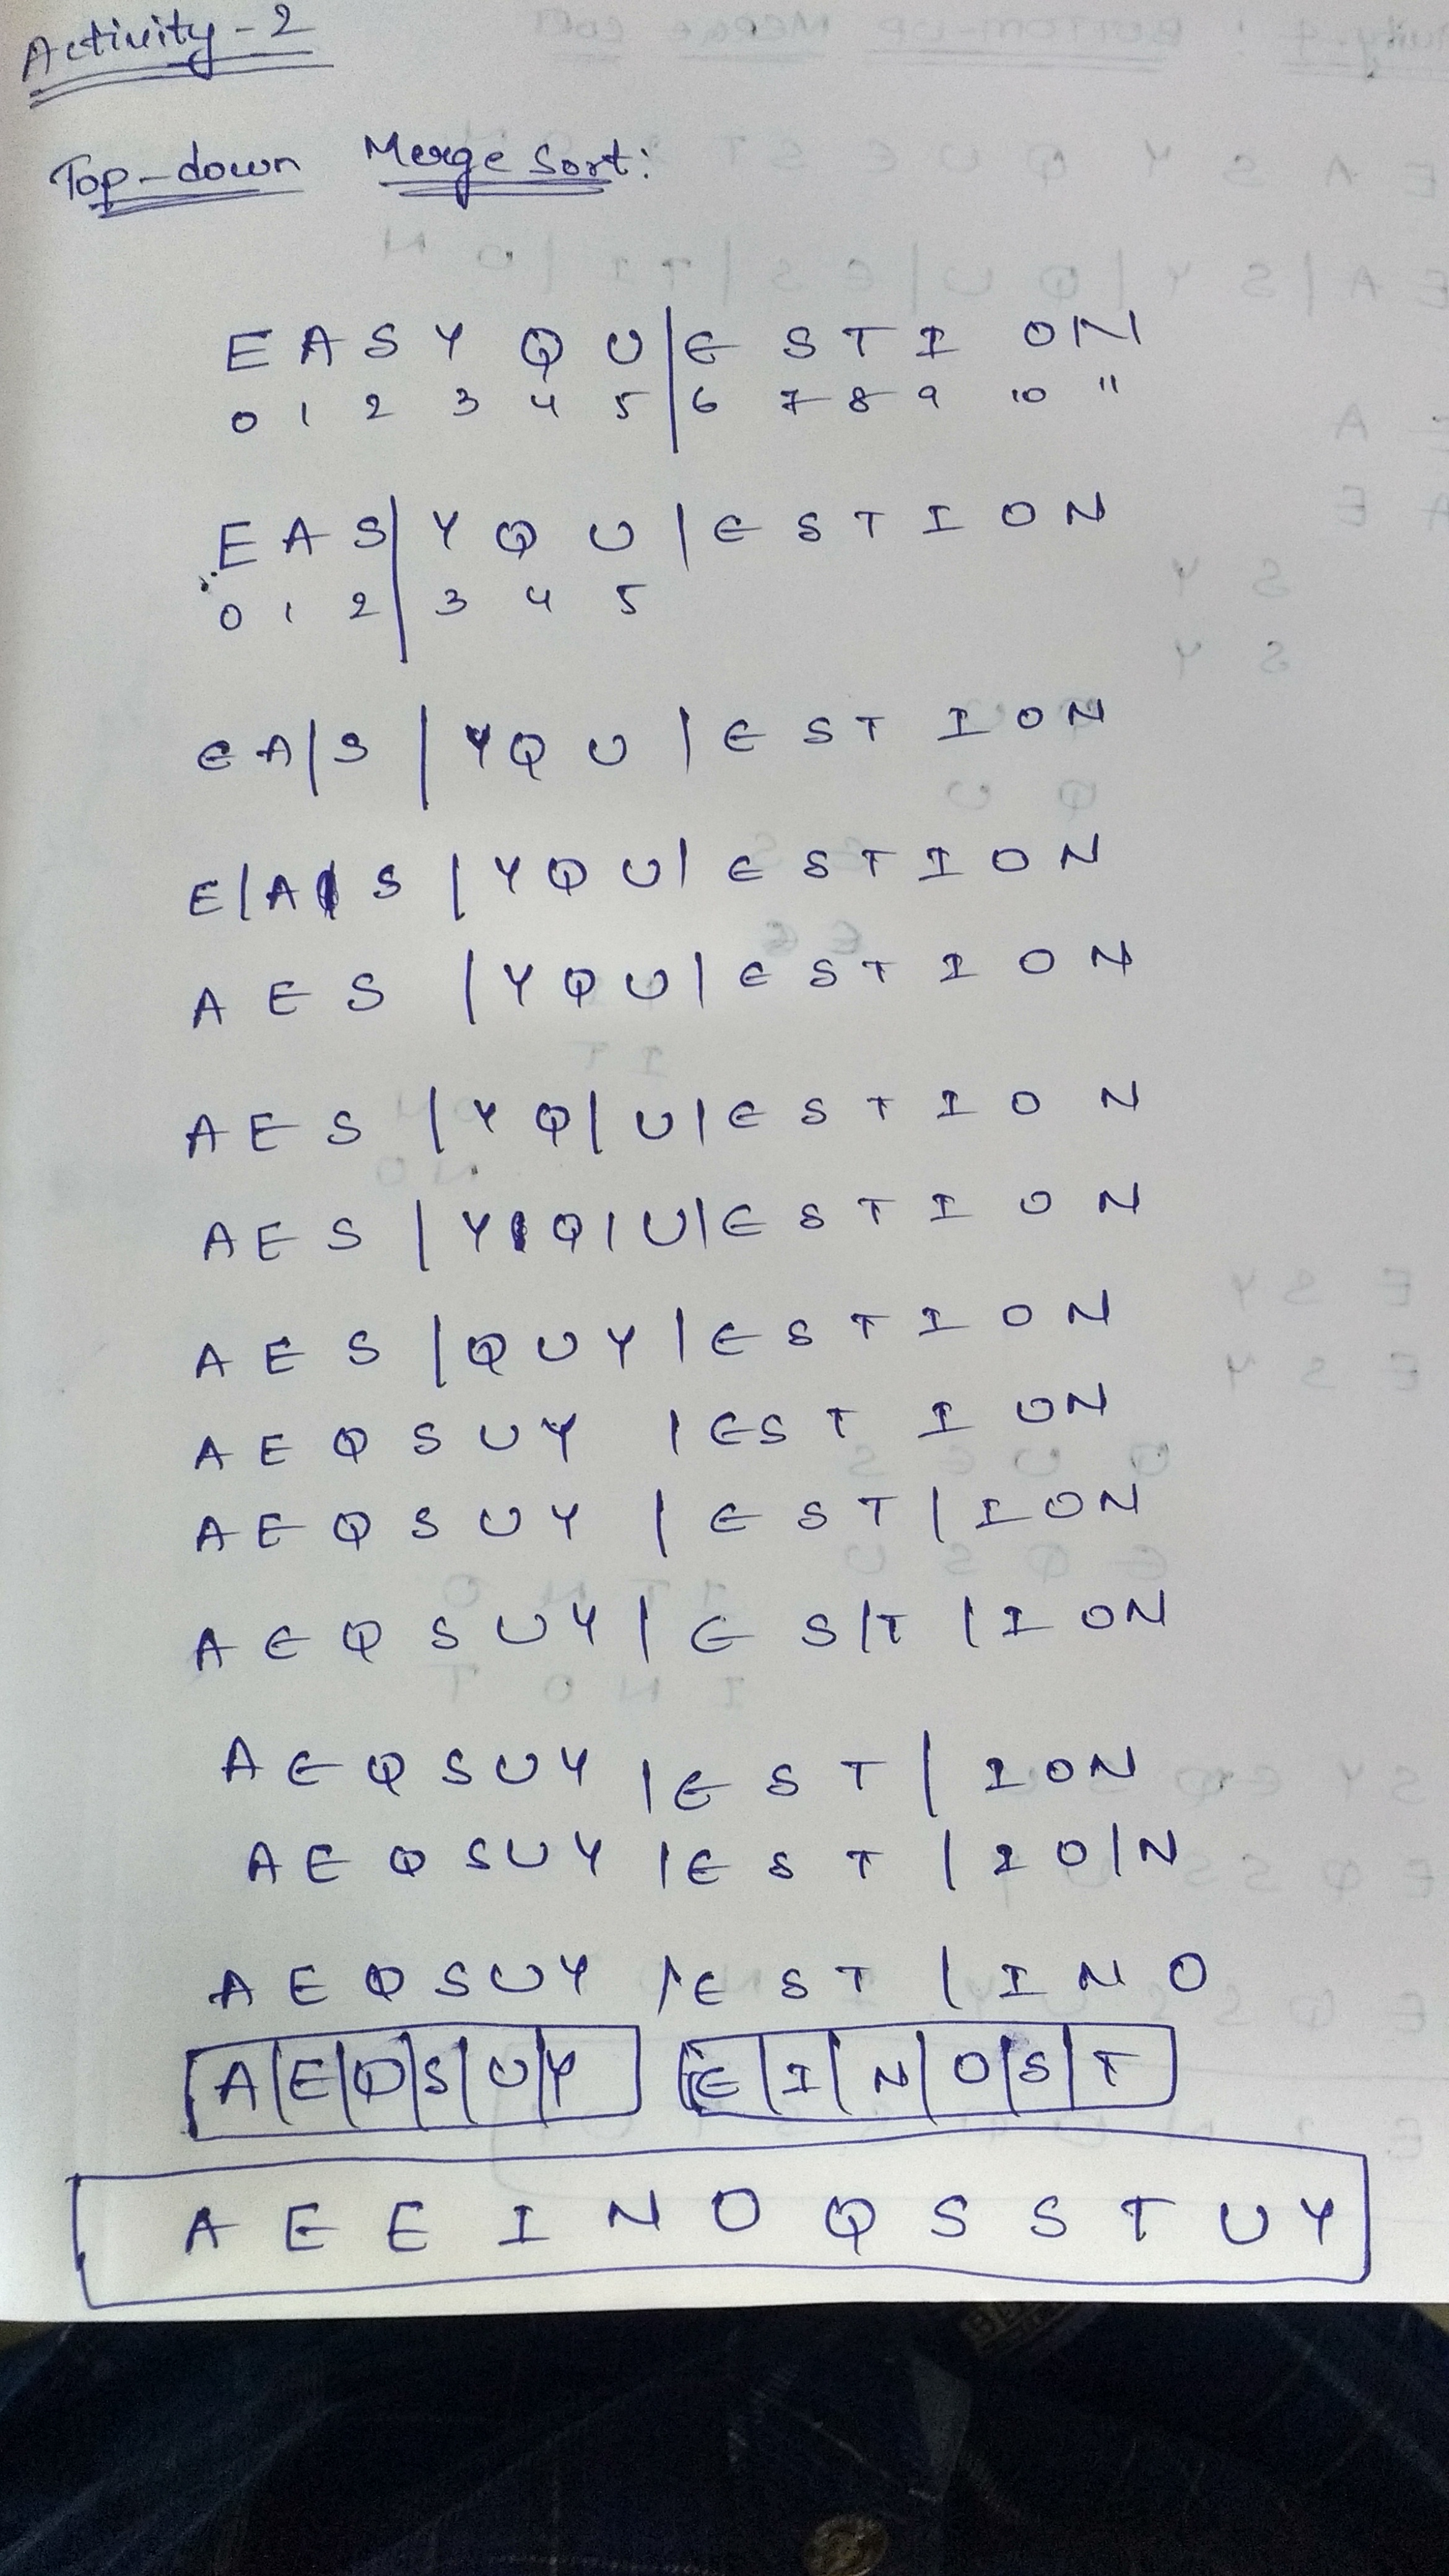 Activity-2
Top-down Merge Sort:
E A S Y Q U | E S T I O N
0 1 2 3 4 5 | 6 7 8 9 10 11
E A S | Y Q U | E S T I O N
0 1 2 | 3 4 5
E A | S | Y Q U | E S T I O N
E | A | S | Y Q U | E S T I O N
A E S | Y Q U | E S T I O N
A E S | Y Q | U | E S T I O N
A E S | Y | Q | U | E S T I O N
A E S | Q U Y | E S T I O N
A E Q S U Y | E S T I O N
A E Q S U Y | E S T | I O N
A E Q S U Y | E S | T | I O N
A E Q S U Y | E S T | I O N
A E Q S U Y | E S T | I O | N
A E Q S U Y | E S T | I N O
A | E | Q | S | U | Y E | I | N | O | S | T
A E E I N O Q S S T U Y